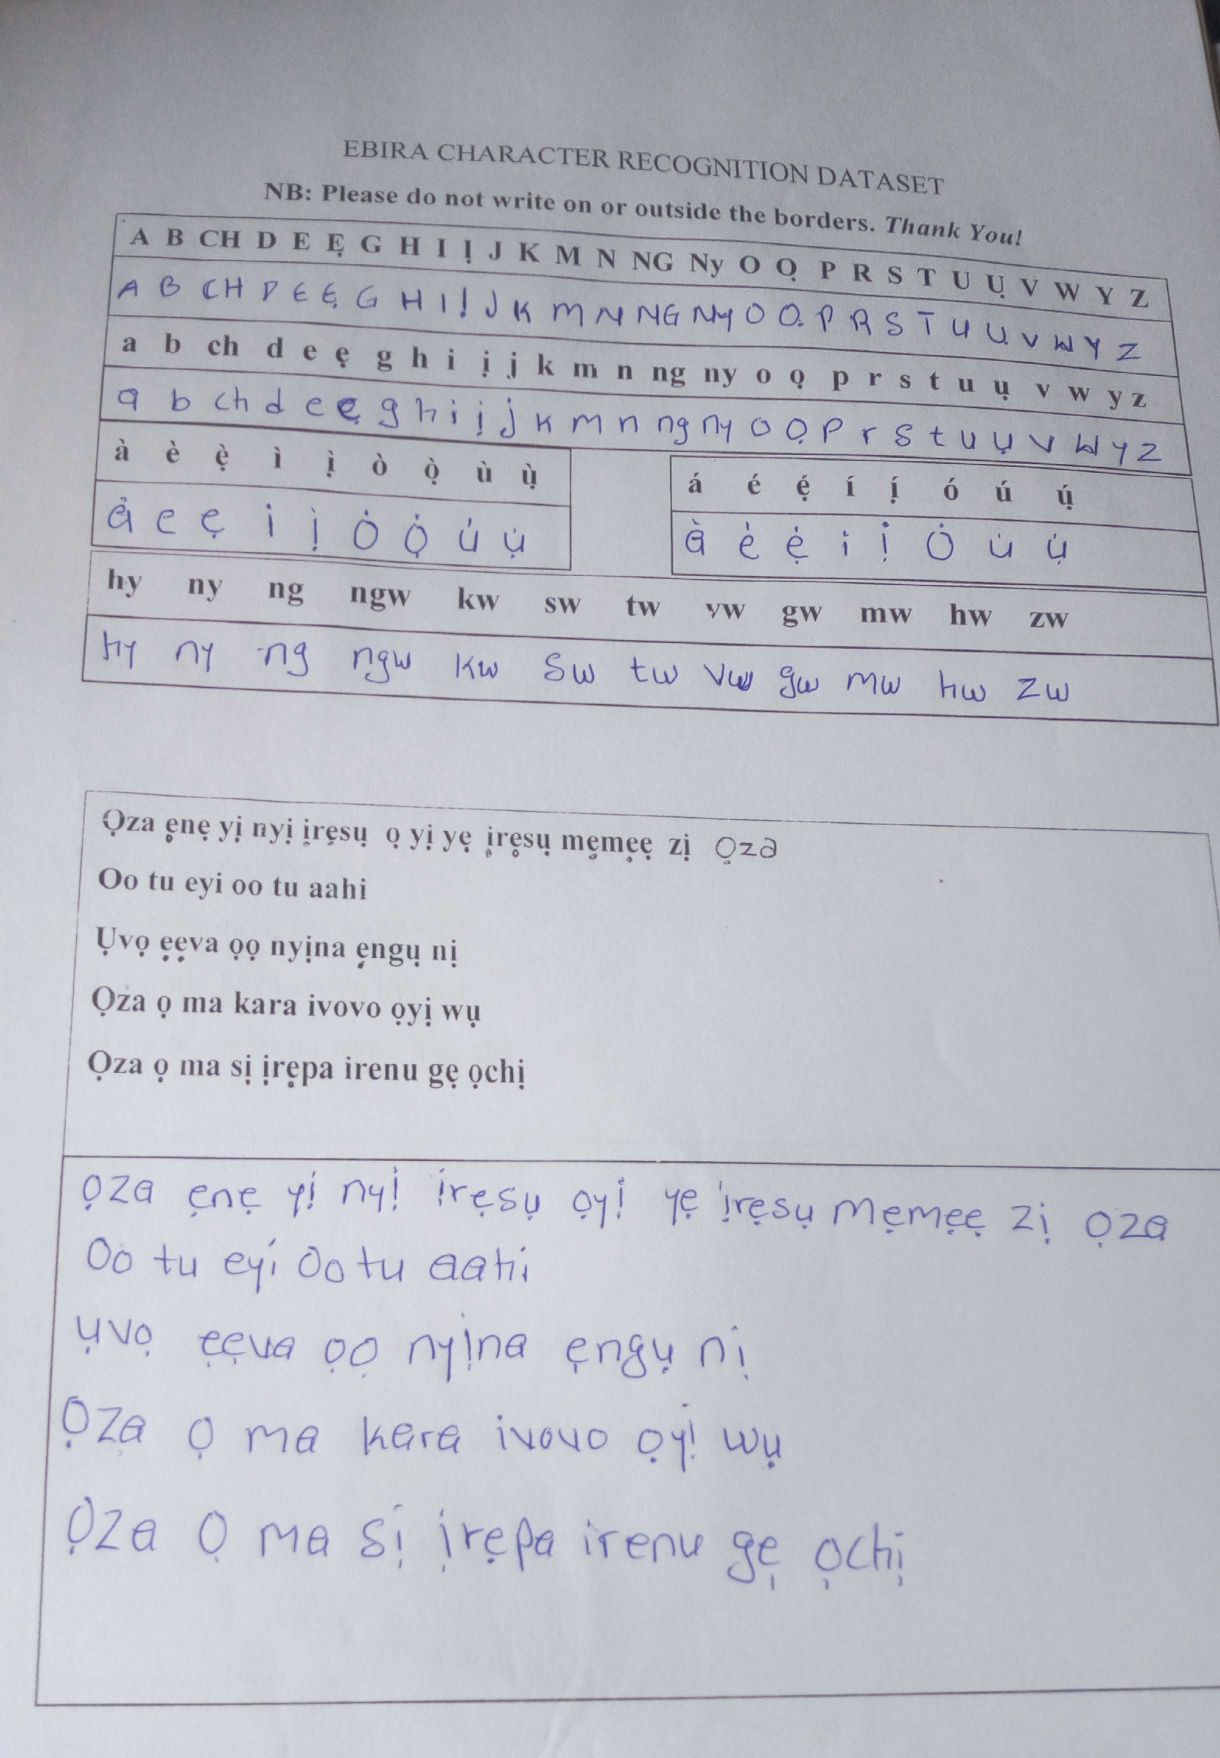 EBIRA CHARACTER RECOGNITION DATASET
NB: Please do not write on or outside the borders. Thank You!
A B CH D E Ẹ G H I Ị J K M N NG Ny O Ọ P R S T U Ụ V W Y Z
A B CH D E Ẹ G H I Ị J K M N NG Ny O Ọ P R S T U U V W Y Z
a b ch d e ẹ g h i ị j k m n ng ny o ọ p r s t u ụ v w y z
a b ch d e ẹ g h i ị j k m n ng ny o ọ p r s t u ụ v w y z
à è ẹ̀ ì ị̀ ò ọ̀ ù ụ̀
ả e ẹ i ị ȯ ọ̇ u̇ ụ̇
á é ẹ́ í ị́ ó ú ụ́
à ė ẹ̇ i ị ȯ u̇ ụ̇
hy ny ng ngw kw sw tw vw gw mw hw zw
hy ny ng ngw kw sw tw vw gw mw hw zw
Ọza ẹnẹ yị nyị ịrẹsụ ọ yị yẹ ịrẹsụ mẹmẹẹ zị ọza
Oo tu eyi oo tu aahi
Ụvọ ẹẹva ọọ nyịna ẹngụ nị
Ọza ọ ma kara ivovo ọyị wụ
Ọza ọ ma sị ịrẹpa irenu gẹ ọchị
Ọza ẹnẹ yị nyị ịrẹsụ ọyị yẹ ịrẹsụ mẹmẹẹ zị ọza
Oo tu eyi Oo tu aahi
ụvọ ẹẹva ọọ nyịna ẹngụ nị
Ọza ọ ma kara ivovo ọyị wụ
Ọza ọ ma sị ịrẹpa irenu gẹ ọchị